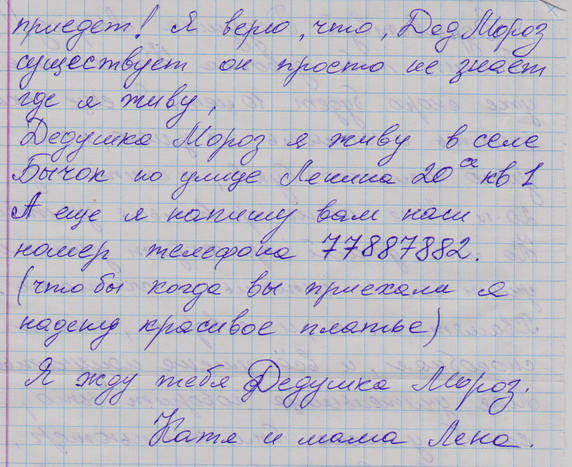 приедет! Я верю, что, Дед Мороз
существует он просто не знает
где я живу,
Дедушка Мороз я живу в селе
Бычок по улице Ленина 20 кв 1
А еще я напишу вам наш
номер телефона 77887882.
(что бы когда вы приехали я
надену красивое платье)
Я жду тебя Дедушка Мороз.
Катя и мама Лена.